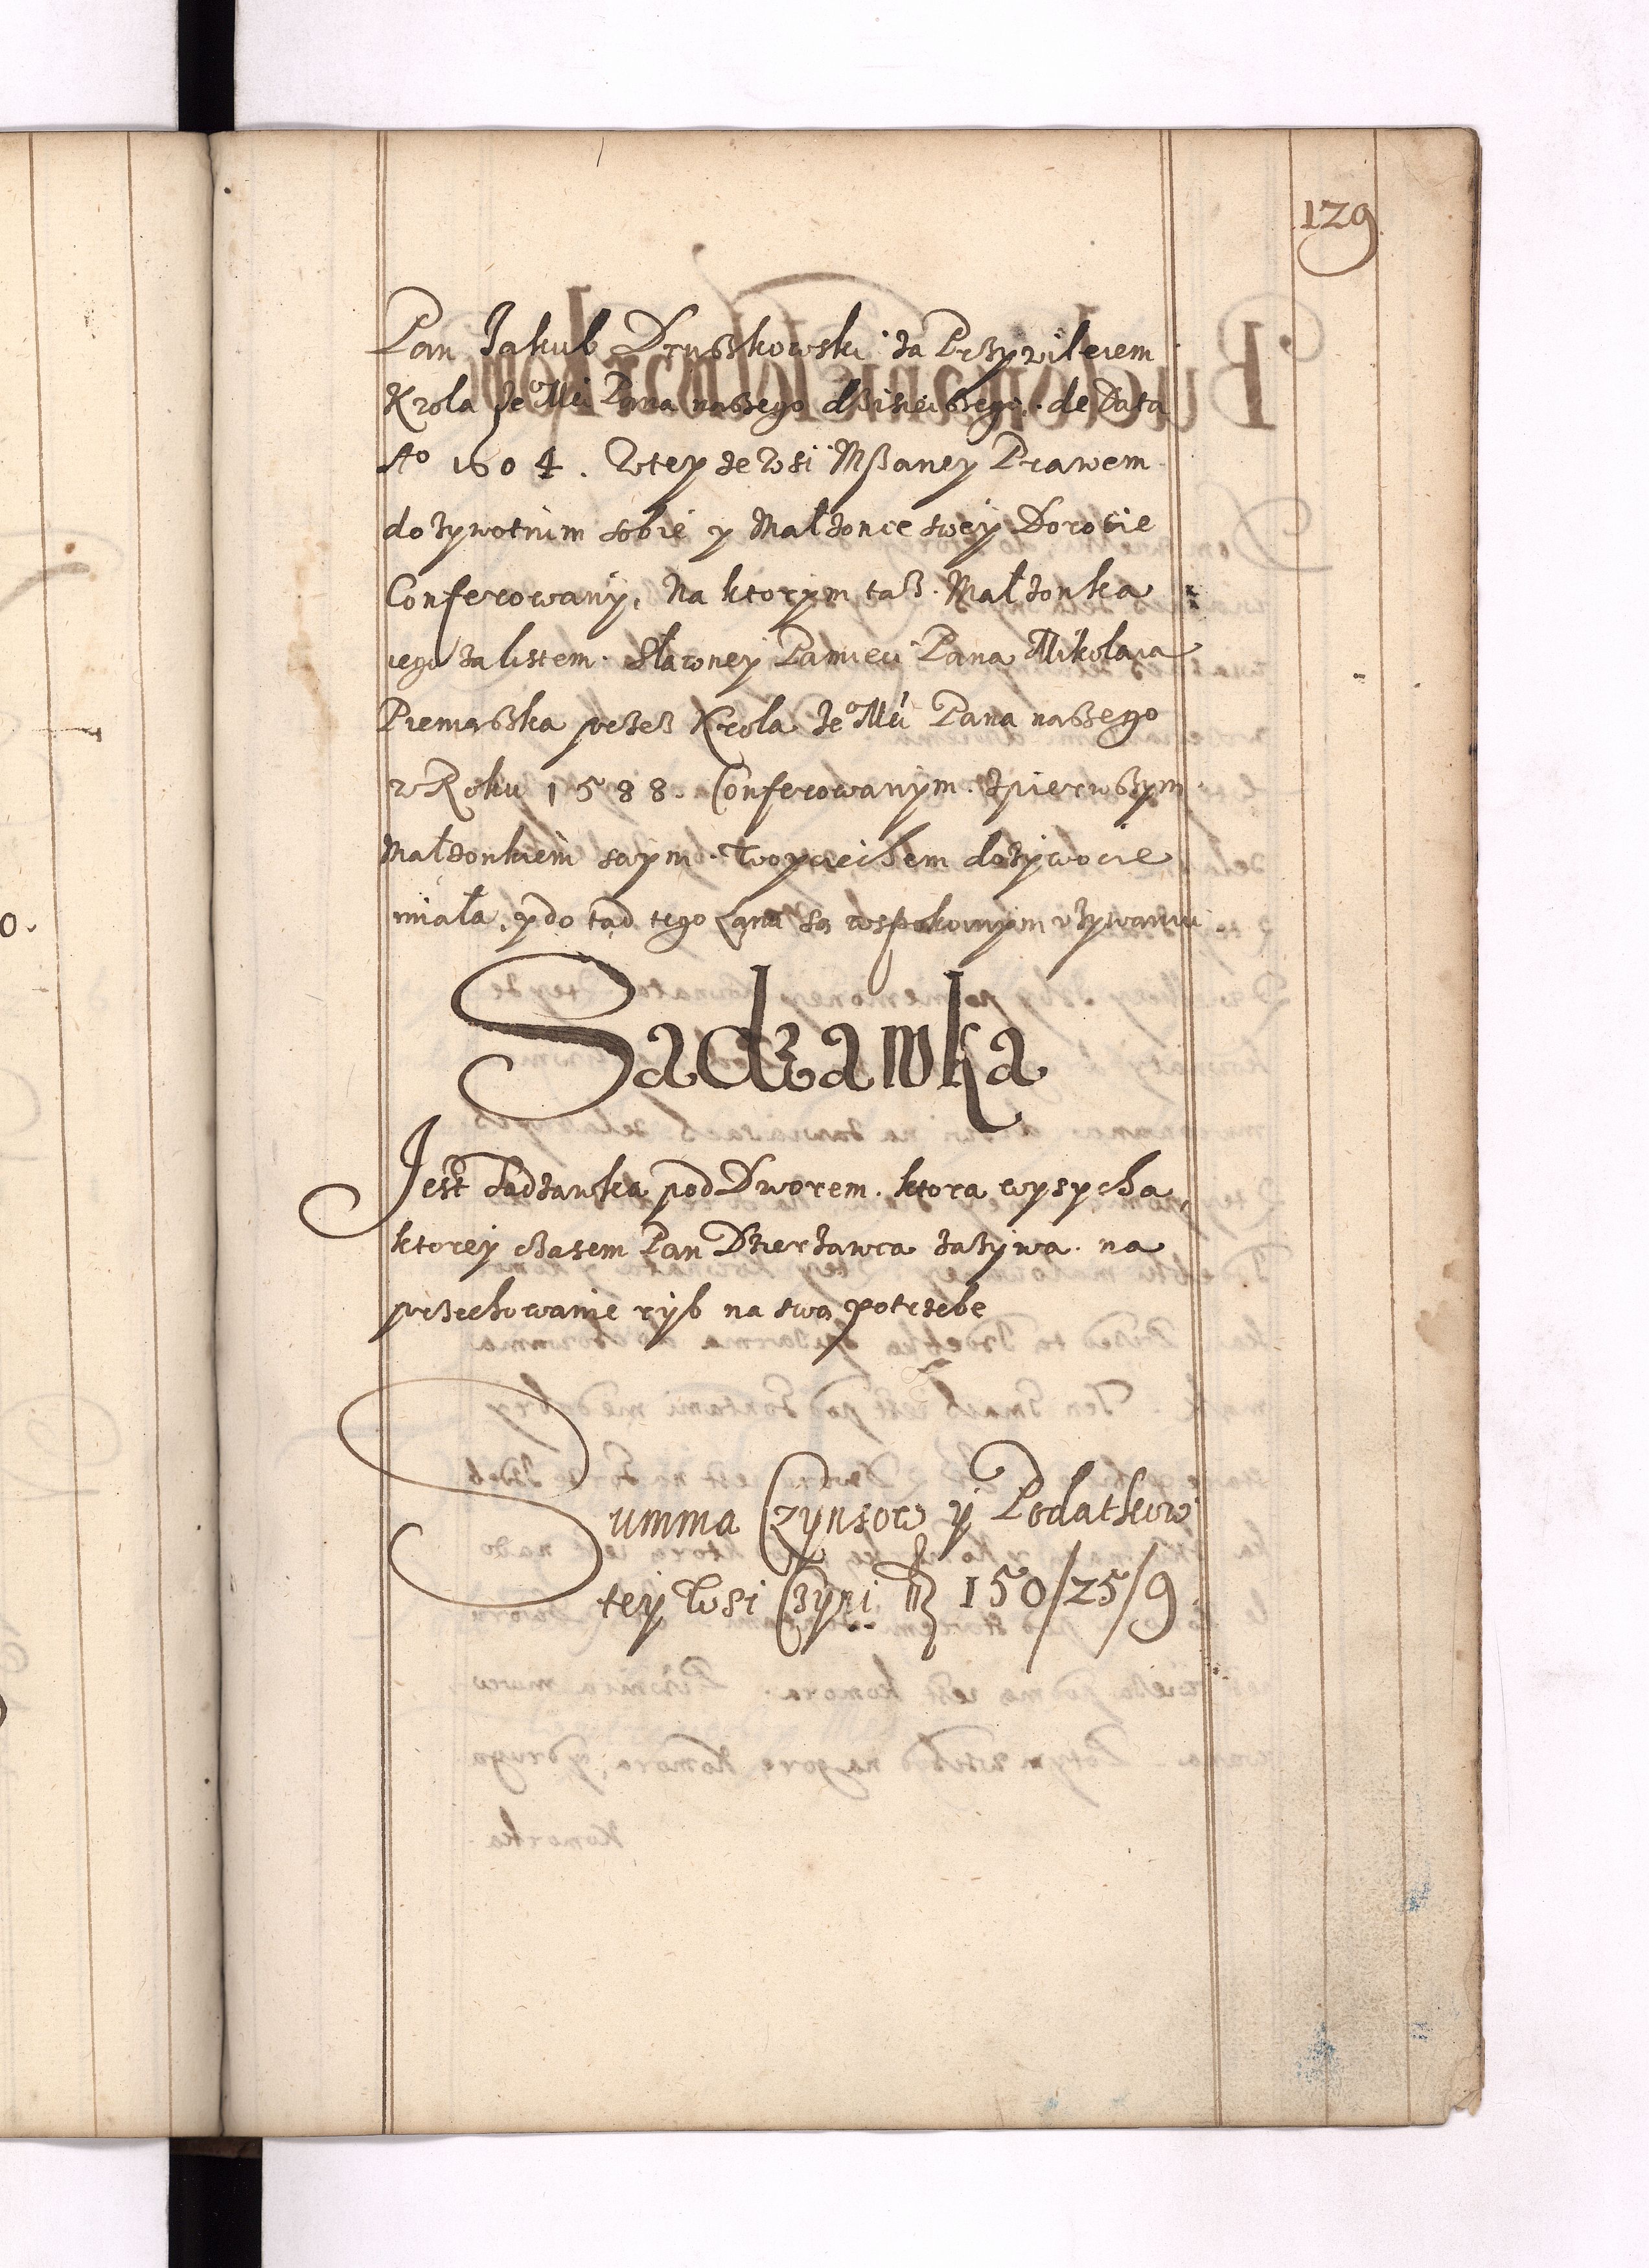 129
Pan Jakub Druszkowski za Przywileiem
Krola Je° Mći Pana naszego dzisieiszego. de Data
A° 1604. W tey ze Wsi Mszaney Prawem
dozywotnim sobie y Małzonce swey Dorocie
Conferowany, Na ktorym tasz. Małzonka
iego za listem. Sławney Pamieci Pana Mikolaia
Pieniąszka przesz Krola Je° Mći Pana naszego
w Roku 1588. Conferowanym. z pierwszym
Małzonkiem swym. Woyciechem dozywocie
miała, y do tąd tego Łanu są w spokoinym vzywaniu
Sadzawka
Jest Sadzawka pod Dworem. ktora wysycha,
ktorey czasem Pan Dzierzawca zazywa. na
przechowanie ryb na swą potrzebe
Summa Czynszow y Podatkow
tey Wsi Czyni ƒ 150/25/9.